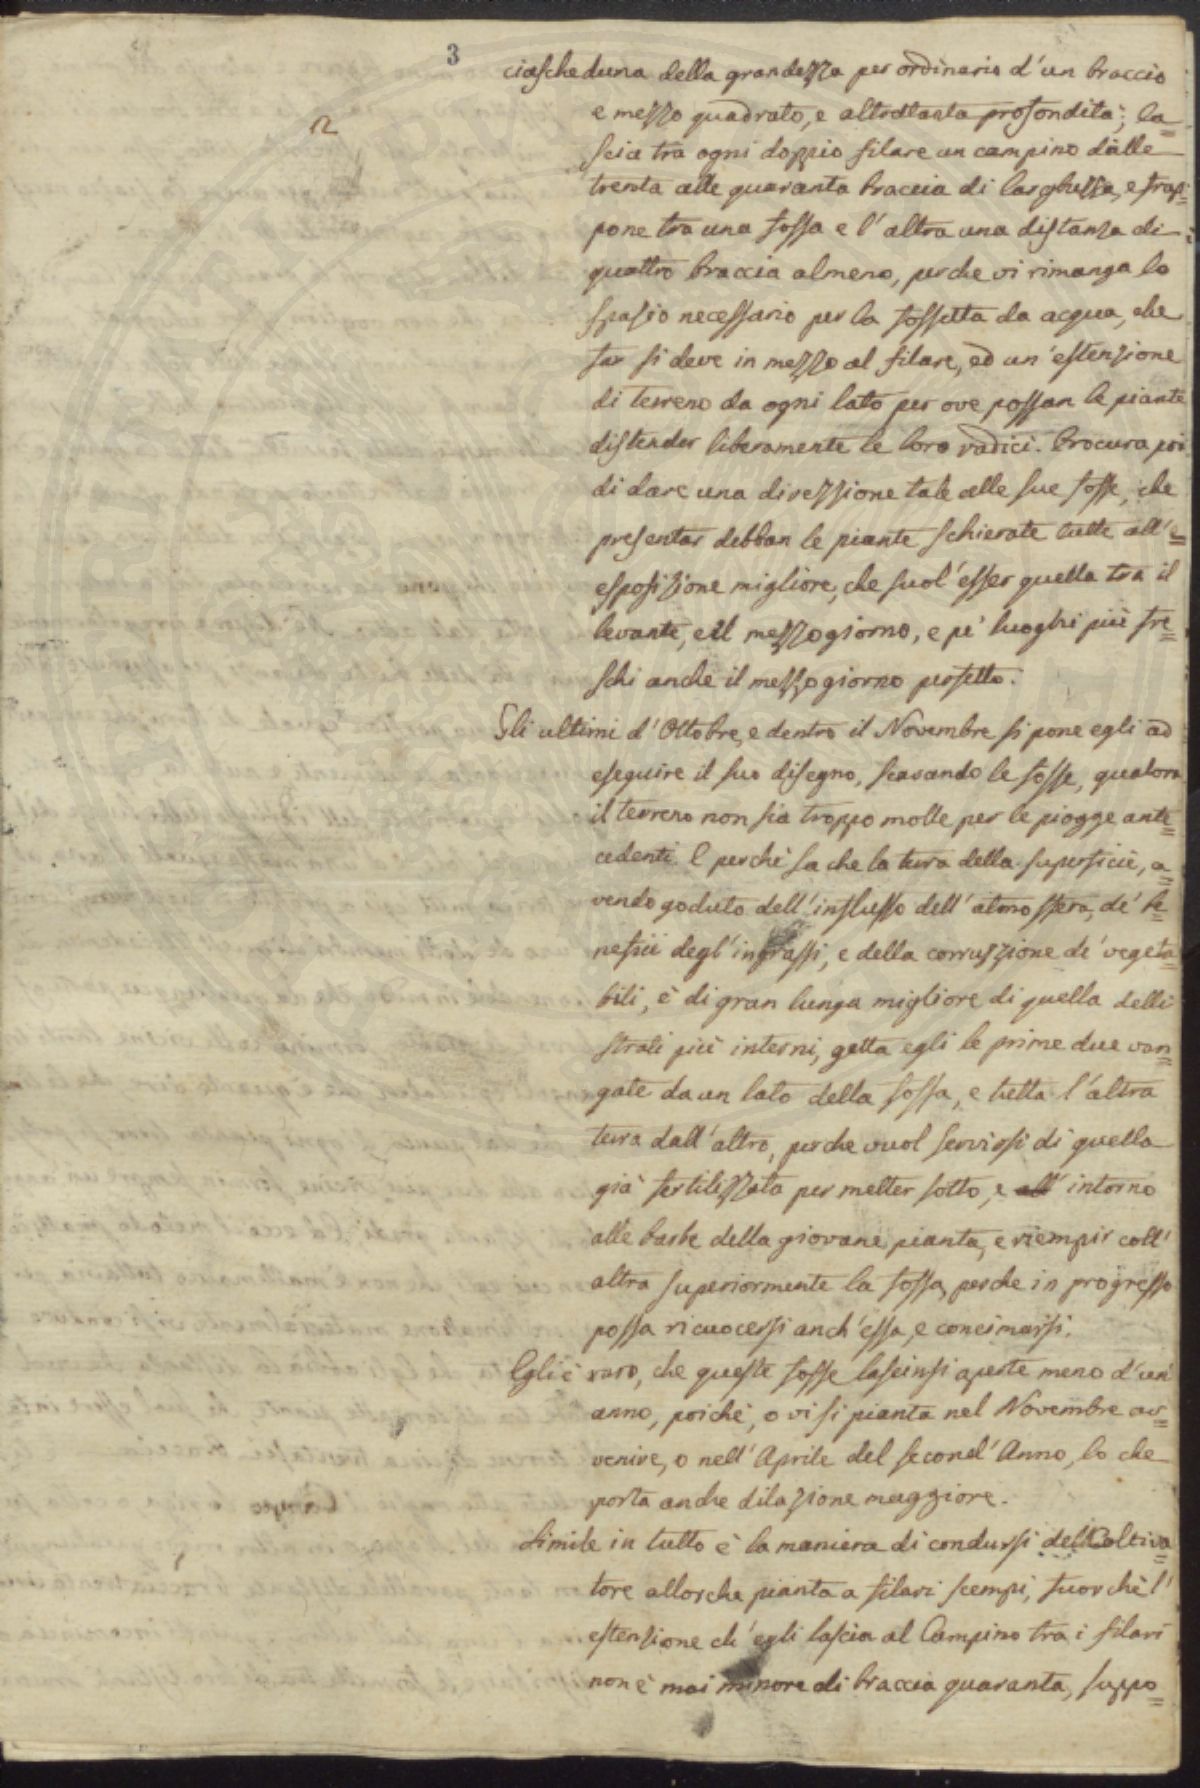 3
ciascheduna della grandezza per ordinario d'un braccio
e mezzo quadrato, e altrettanta profondità; la=
scia tra ogni doppio filare un campino dalle
trenta alle quaranta braccia di larghezza, e frap=
pone tra una fossa e l'altra una distanza di
quattro braccia almeno, perche vi rimanga lo
spazio necessario per la fossetta da acqua, che
far si deve in mezzo al filare, ed un'estenzione
di terreno da ogni lato per ove possan le piante
distender liberamente le loro radici. Procura poi
di dare una direzzione tale alle sue fosse, che
presentar debban le piante schierate tutte all'e=
esposizione migliore, che suol'esser quella tra il
levante, e il mezzogiorno, e pe' luoghi più fre=
schi anche il mezzogiorno perfetto.
Gli ultimi d'Ottobre, e dentro il Novembre si pone egli ad
eseguire il suo disegno, scavando le fosse, qualora
il terreno non sia troppo molle per le piogge ante=
cedenti. E perchè sa che la terra della superficie, a=
vendo goduto dell'influsso dell'atmosfera, de' be=
nefizii degl'ingrassi, e della corruzzione de' vegeta=
bili, è di gran lunga migliore di quella delli
strati più interni, getta egli le prime due van=
gate da un lato della fossa, e tutta l'altra
terra dall'altro, perche vuol servirsi di quella
già fertilizzata per metter sotto, e all' intorno
alle barbe della giovane pianta, e riempir coll'
altra superiormente la fossa, perche in progresso
possa ricuocersi anch'essa, e concimarsi.
Egli è raro, che queste fosse lascinsi aperte meno d'un'
anno, poichè, o vi si pianta nel Novembre av=
venire, o nell'Aprile del second'Anno, lo che
porta anche dilazione maggiore.
Simile in tutto è la maniera di condursi del Coltiva=
tore allorche pianta a filari scempi, fuorchè l'
estensione ch'egli lascia al Campino tra i filari
non è mai minore di braccia quaranta, suppo=